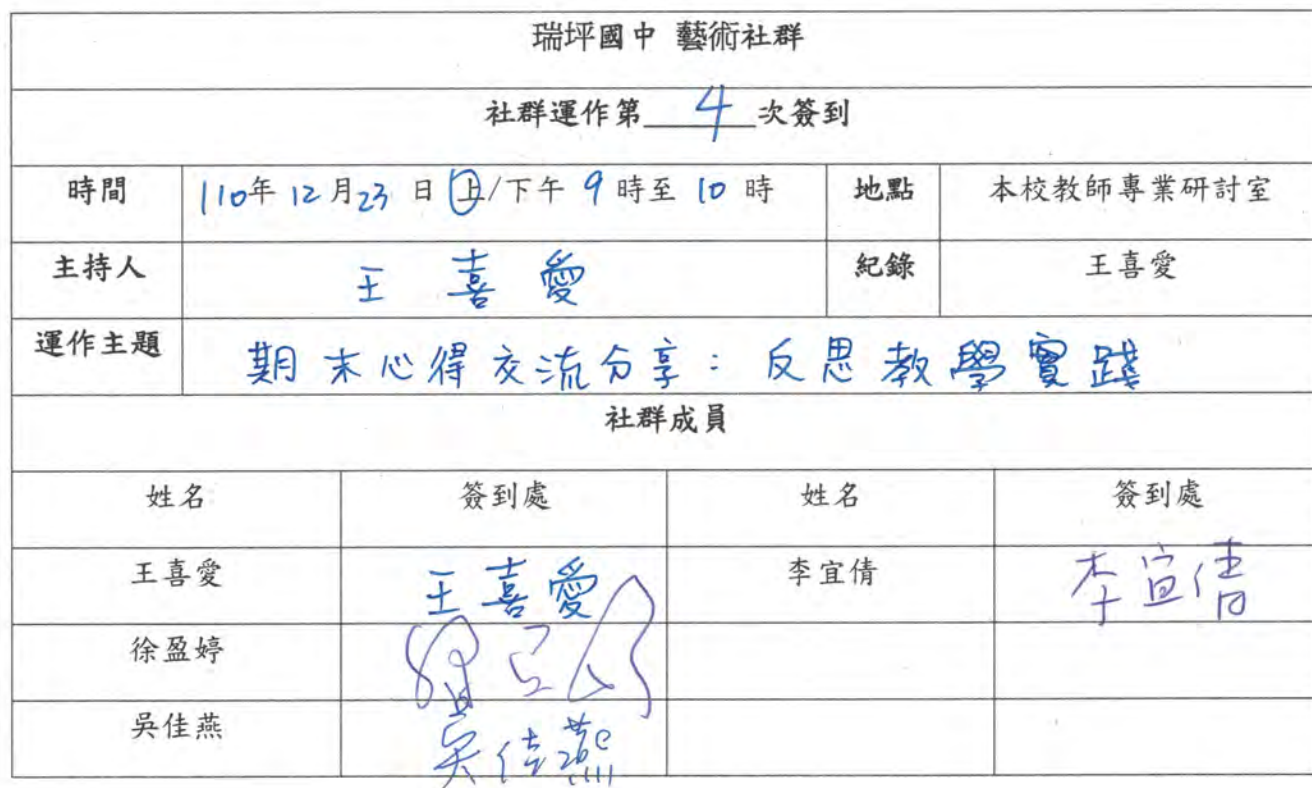 瑞坪國中 藝術社群
社群運作第 4 次簽到
時間 110年12月23日 上/下午 9時至10時 地點 本校教師專業研討室
主持人 王喜愛 紀錄 王喜愛
運作主題 期末心得交流分享：反思教學實踐
社群成員
姓名 簽到處 姓名 簽到處
王喜愛 王喜愛 李宜倩 李宜倩
徐盈婷
吳佳燕 吳佳燕